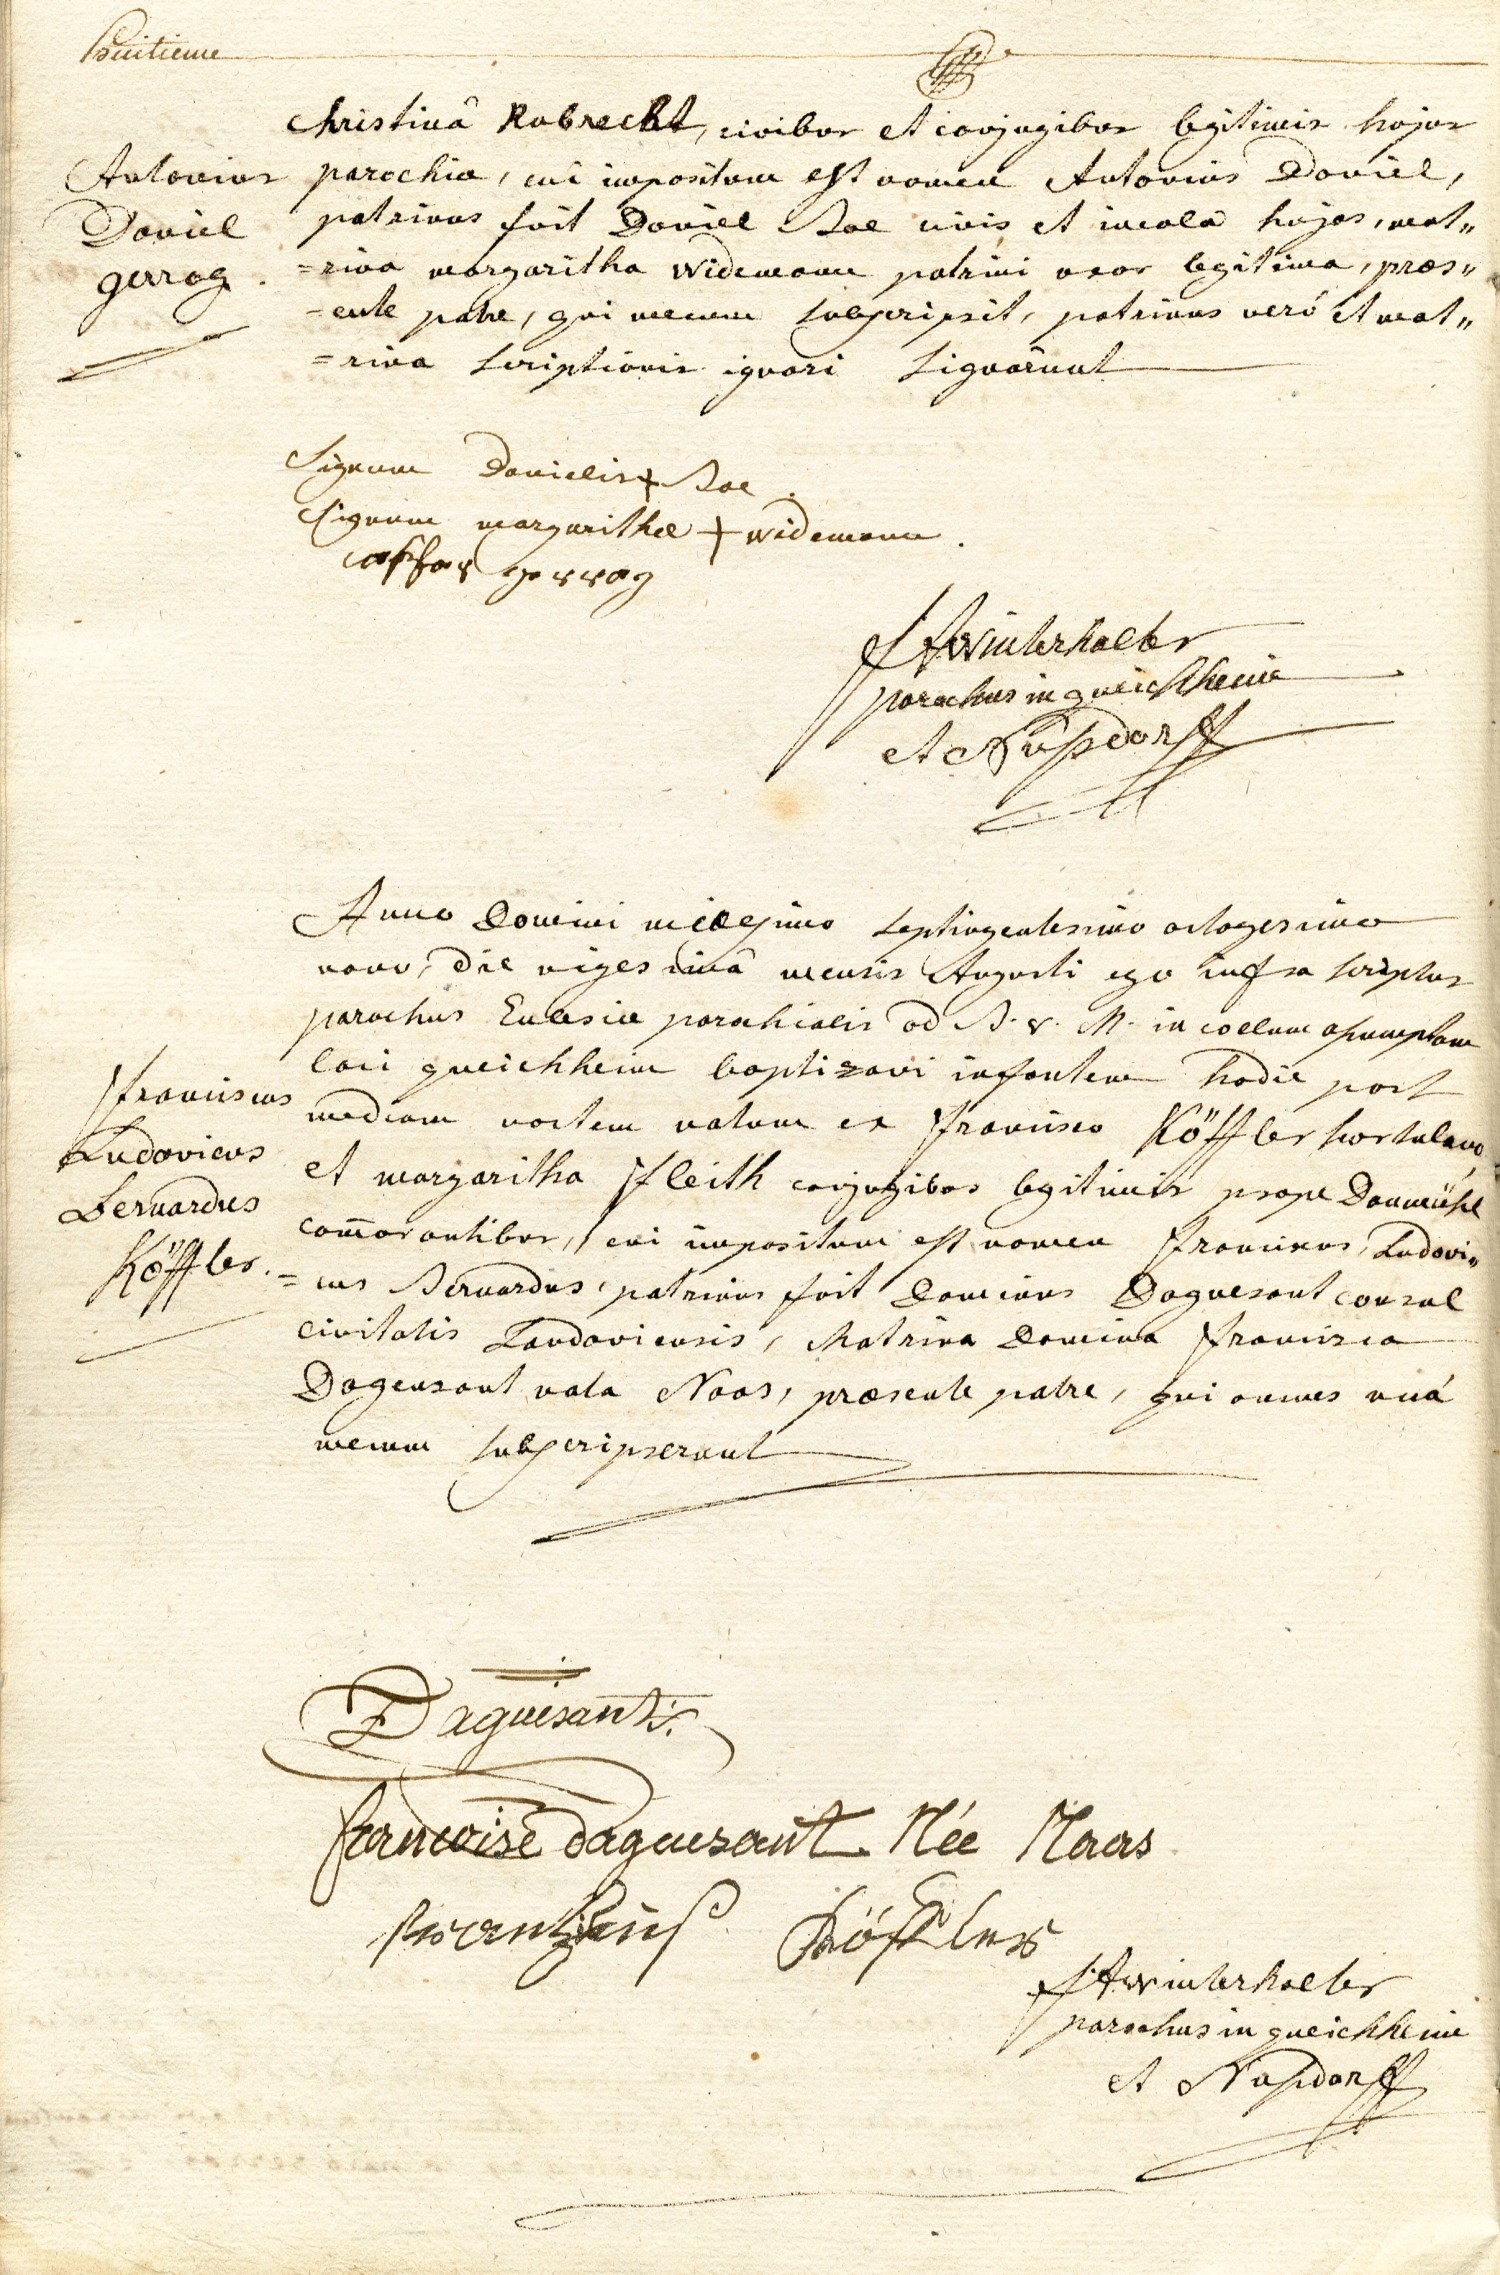 huitieme
Christinâ Rubrecht, civibus et conjugibus legitimis hujus
Antonius
Daniel
gerrag.
parochiæ, cui impositum est nomen Antonius Daniel,
patrinus fuit Daniel Bal civis et incola hujas, mat„
=rina margaritha Widemann patrini uxor legitima, præs„
=ente patre, qui mecum subscripsit, patrinus verò et mat„
=rina scriptionis ignari signârunt
Signum Danielis + Bal.
Signum margarithæ + widemann.
gerrag
F A Winterhalter
parochus in queichheim
et Nusdorff
Anno Domini millesimo septingentesimo octogesimo
nono, die vigesimâ mensis Augusti ego infra scriptus
parochus Ecclesiæ parochialis ad B. V. M. in coelum assumptam
loci queichheim baptizavi infantem hodie post
mediam noctem natum ex francisco Köffler hortulano,
et margaritha fleith conjugibus legitimis prope Dammühl
com̄orantibus, cui impositum est nomen franciscus, Ludovi„
=cus Bernardus, patrinus fuit Dominus Daguesant consul
civitatis Landaviensis, Matrina Domina francisca
Dagensant nata Naas, præsente patre, qui omnes unà
mecum subscripserunt
franciscus
Ludovicus
Bernardus
Köffler.
Daguesant.
francoise daguesant Née Naas
Köffler
F A Winterhalter
parochus in queichheim
et Nusdorff